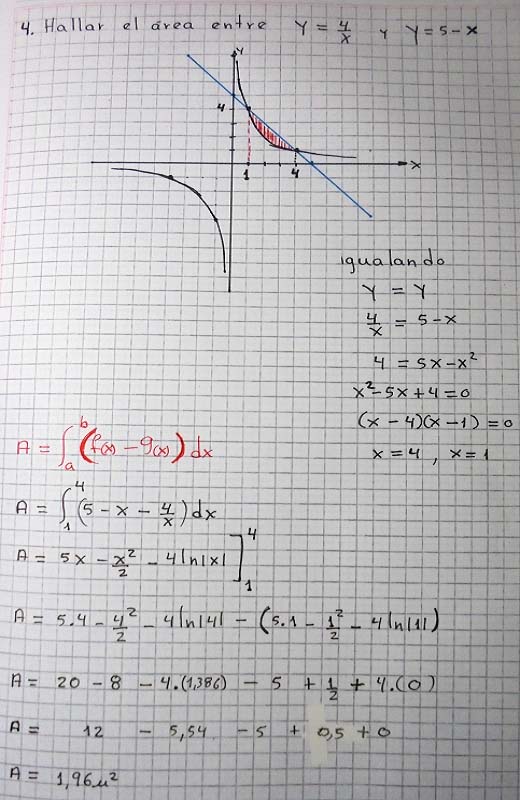 4. Hallar el área entre y = 4/x y y = 5-x
y
4
1 4 x
igualando
y = y
4/x = 5-x
4 = 5x-x²
x²-5x+4=0
(x-4)(x-1)=0
x=4, x=1
A = ∫_a^b (f(x) - g(x)) dx
A = ∫_1^4 (5 - x - 4/x) dx
A = 5x - x²/2 - 4 ln|x| ]_1^4
A = 5.4 - 4²/2 - 4 ln|4| - (5.1 - 1²/2 - 4 ln|1|)
A = 20 - 8 - 4.(1,386) - 5 + 1/2 + 4.(0)
A = 12 - 5,54 - 5 + 0,5 + 0
A = 1,96 u²